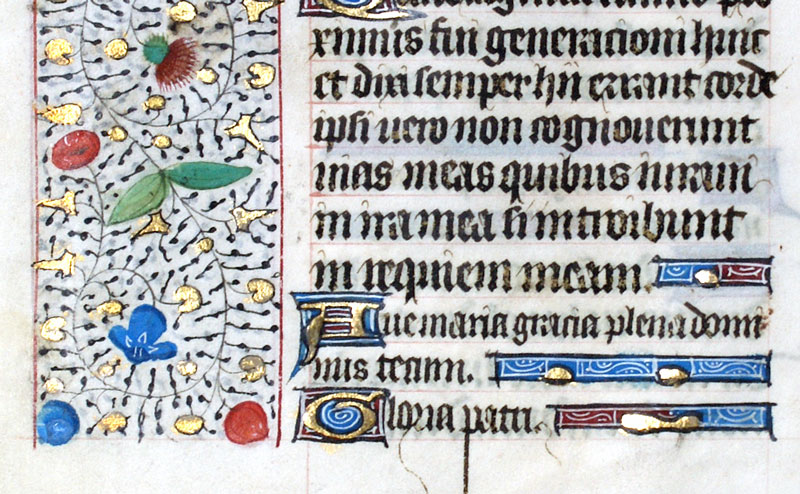 Quadraginta annis pro
ximus fui generacioni huic
et dixi semper hii errant corde
ipsi uero non cognouerunt
uias meas quibus iuraui
in ira mea si introibunt
in requiem meam.
Aue maria gracia plena domi
nus tecum.
Gloria patri.